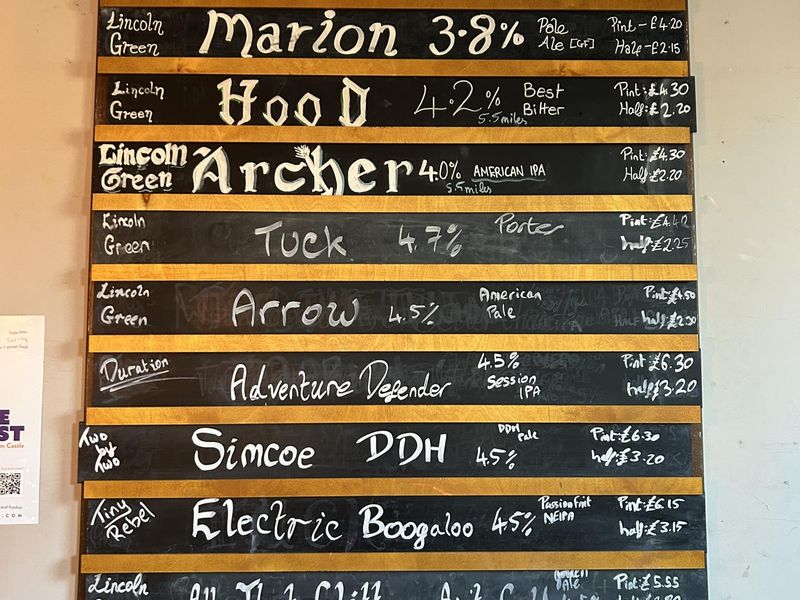 Lincoln Green Marion 3.8% Pale Ale [GF] Pint - £4.20 Half - £2.15
Lincoln Green Hood 4.2% 5.5miles Best Bitter Pint: £4.30 Half: £2.20
Lincoln Green Archer 4.0% 5.5miles AMERICAN IPA Pint: £4.30 Half: £2.20
Lincoln Green Tuck 4.7% Porter Pint: £4.40 half: £2.25
Lincoln Green Arrow 4.5% American Pale Pint: £4.50 half: £2.30
Duration Adventure Defender 4.5% Session IPA Pint: £6.30 half: £3.20
Two by Two Simcoe DDH 4.5% DDH Pale Pint: £6.30 half: £3.20
Tiny Rebel Electric Boogaloo 4.5% Passionfruit NEIPA Pint: £6.15 half: £3.15
Lincoln All That Pint: £5.55